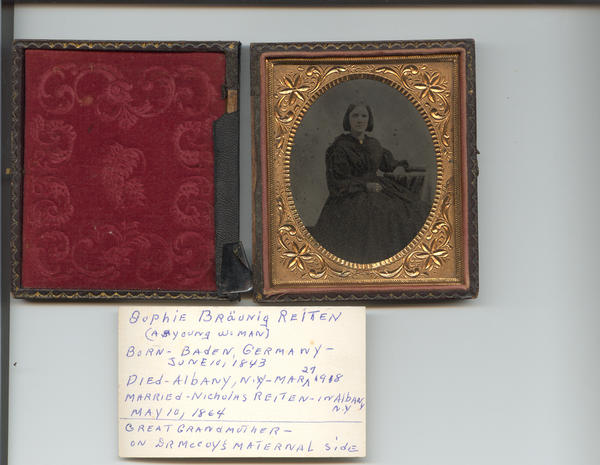 Sophie Bräunig REITEN
(AS YOUNG WOMAN)
BORN - BADEN, GERMANY -
JUNE 10, 1843
DIED - ALBANY, N.Y - MAR 27 1918
MARRIED - Nicholas REITEN - IN Albany, N.Y
MAY 10, 1864
GREAT GRANDMOTHER -
ON DR McCOY'S MATERNAL SIDE